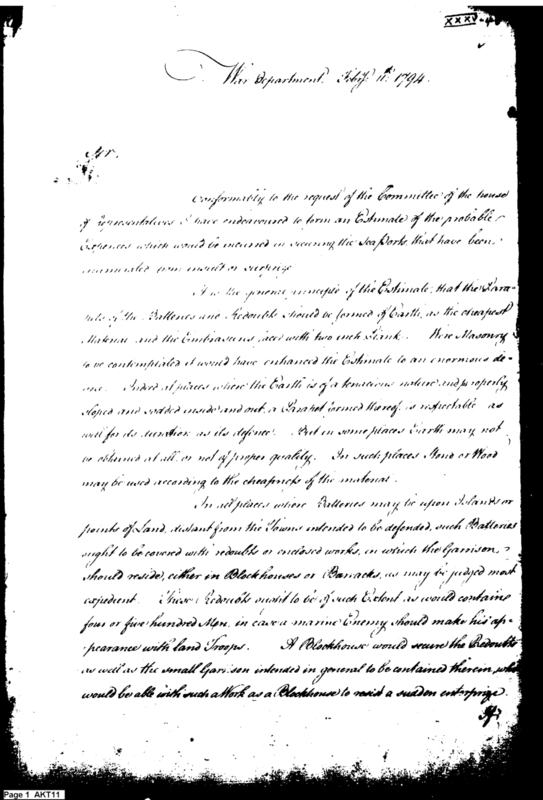 XXXV
War Department Feby. 11th. 1794.
Sir.
Conformably to the request of the Committee of the house
of Representatives I have endeavoured to form an Estimate of the probable
Expences which would be incured in securing the Sea Ports, that have been
enumerated from insult or surprize
It is the general principle of the Estimate, that the Para-
pets of the Batteries and Redoubts should be formed of Earth, as the cheapest
Material and the Embrasures faced with two inch Plank. Were Masonry
to be contemplated it would have enhanced the Estimate to an enormous de-
gree. Indeed at places where the Earth is of a tenacious nature and properly
sloped and sodded inside and out, a Parapet formed thereof, is respectable as
well for its duration as its defence. But in some places Earth may not
be obtained at all, or not of proper quality. In such places Stone or Wood
may be used according to the cheapness of the material.
In all places where Batteries may be upon Islands or
points of Land, distant from the Towns intended to be defended, such Batteries
ought to be covered with redoubts or enclosed works, in which the Garrison,
should reside, either in Blockhouses or Barracks, as may be judged most
expedient. These Redoubts ought to be of such Extent as would contain
four or five hundred Men, in case a marine Enemy should make his ap-
pearance with land Troops. A Blockhouse would secure the Redoubt
as well as the small Garrison intended in general to be contained therein, who
would be able with such a Work as a Blockhouse to resist a sudden enterprize.
Page 1 AKT11